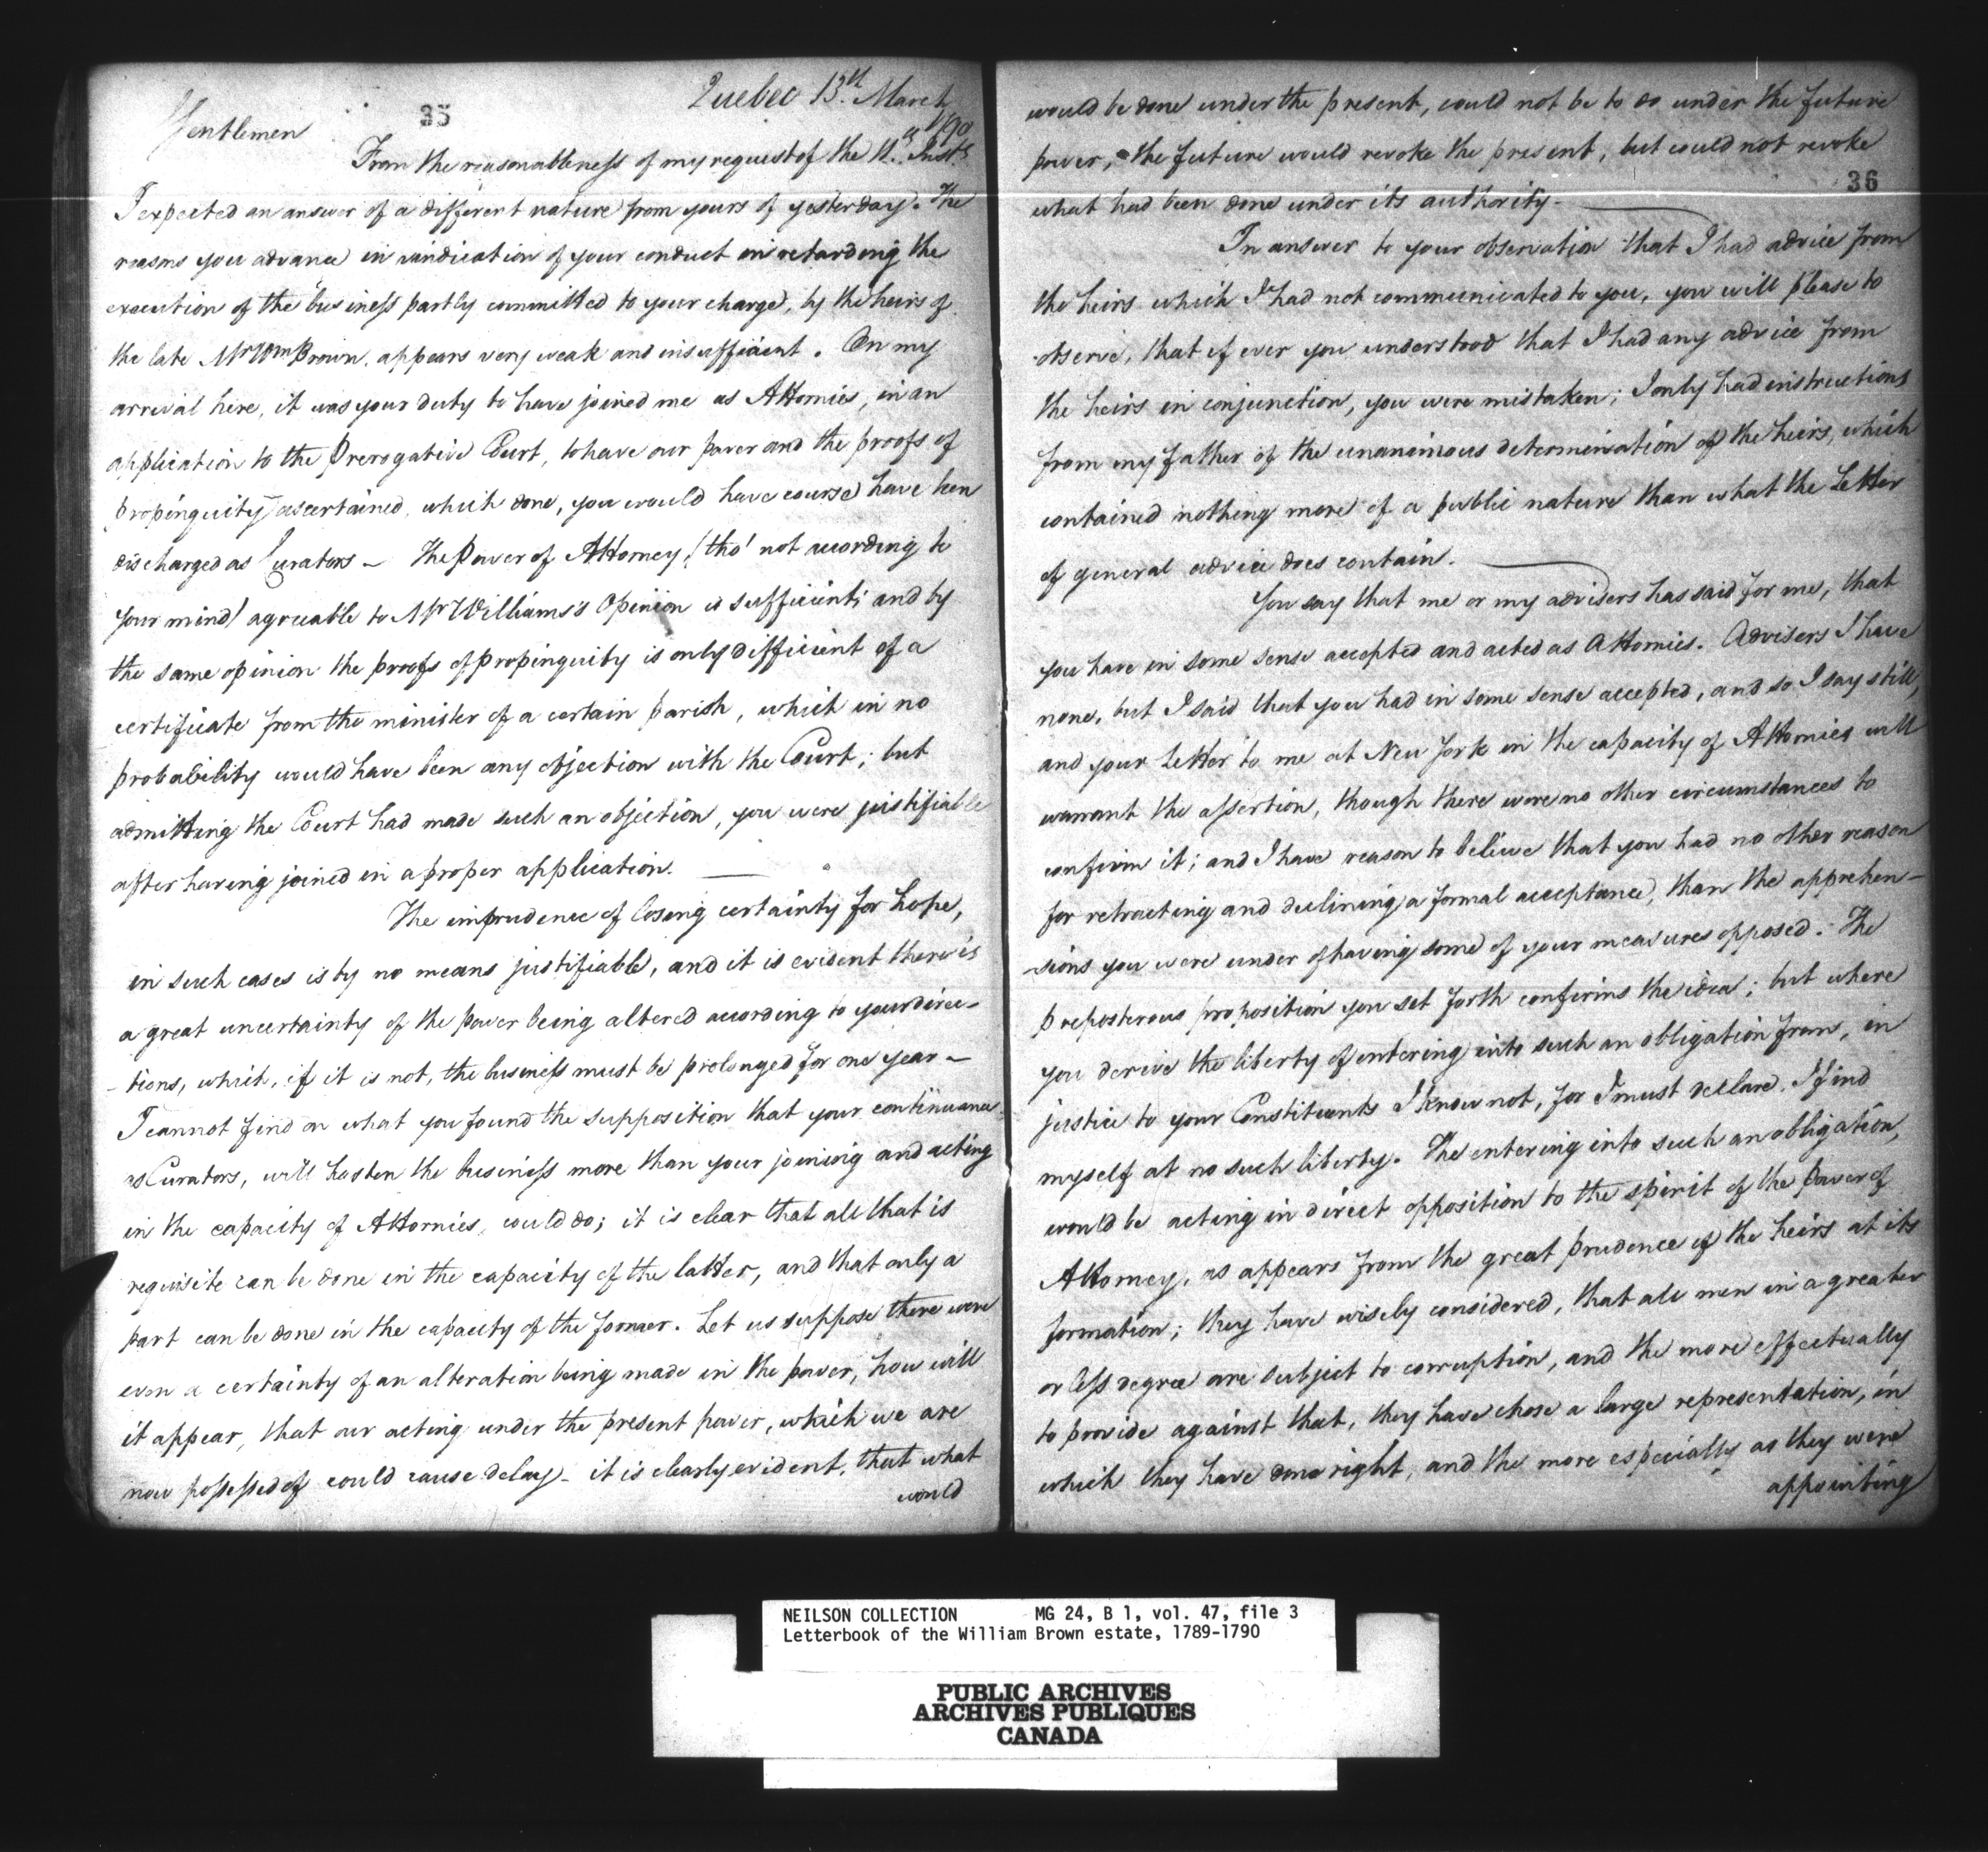 35
Quebec 13th March
1790
Gentlemen
From the reasonableness of my request of the 11th Inst
I expected an answer of a different nature from yours of yesterday. The
reasons you advance in vindication of your conduct in retarding the
execution of the business partly committed to your charge, by the heirs of
the late Mr Wm Brown, appears very weak and insufficient. On my
arrival here, it was your duty to have joined me as Attornies, in an
application to the Prerogative Court, to have our power and the proofs of
propinquity ascertained, which done, you would have course have been
discharged as Curators – The Power of Attorney (tho' not acording to
your mind) agreeable to Mr Williams's Opinion is sufficient; and by
the same opinion the proofs of propinquity is only difficient of a
certificate from the minister of a certain parish, which in no
probability would have been any objection with the Court; but
admitting the Court had made such an objection, you were justifiable
after having joined in a proper application.
The imprudence of losing certainty for hope,
in such cases is by no means justifiable, and it is evident there is
a great uncertainty of the power being altered according to your direc-
-tions, which, if it is not, the business must be prolonged for one year –
I cannot find on what you found the supposition that your continuance
as Curators, will hasten the business more than your joining and acting
in the capacity of Attornies, could do; it is clear that all that is
requisite can be done in the capacity of the latter, and that only a
part can be done in the capacity of the former. Let us suppose there were
even a certainty of an alteration being made in the power, how will
it appear, that our acting under the present power, which we are
now possessed of could cause delay – it is clearly evident, that what
would
would be done under the present, could not be to do under the future
power, the future would revoke the present, but could not revoke
36
what had been done under its authority –
In answer to your observation that I had advice from
the heirs which I had not communicated to you, you will please to
observe, that if ever you understood that I had any advice from
the heirs in conjunction, you were mistaken; I only had instructions
from my father of the unanimous determination of the heirs, which
contained nothing more of a public nature than what the Letter
of general advice does contain.
You say that me or my advisers has said for me, that
you have in some sense accepted and acted as Attornies. Advisers I have
none, but I said that you had in some sense accepted, and so I say still,
and your Letter to me at New York in the capacity of Attornies will
warrant the assertion, though there were no other circumstances to
confirm it; and I have reason to believe that you had no other reason
for retracting and declining a formal acceptance, than the apprehen-
-sions you were under of having some of your measures opposed. The
preposterous proposition you set forth confirms the idea; but where
you derive the liberty of entering into such an obligation from, in
justice to your Constituents I know not, for I must declare, I find
myself at no such liberty. The entering into such an obligation,
would be acting in direct opposition to the spirit of the Power of
Attorney, as appears from the great prudence of the heirs at its
formation; they have wisely considered, that all men in a greater
or less degree are subject to corruption, and the more effectually
to provide against that, they have chose a large representation, in
which they have done right, and the more especially as they were
appointing
NEILSON COLLECTION MG 24, B 1, vol. 47, file 3
Letterbook of the William Brown estate, 1789-1790
PUBLIC ARCHIVES
ARCHIVES PUBLIQUES
CANADA